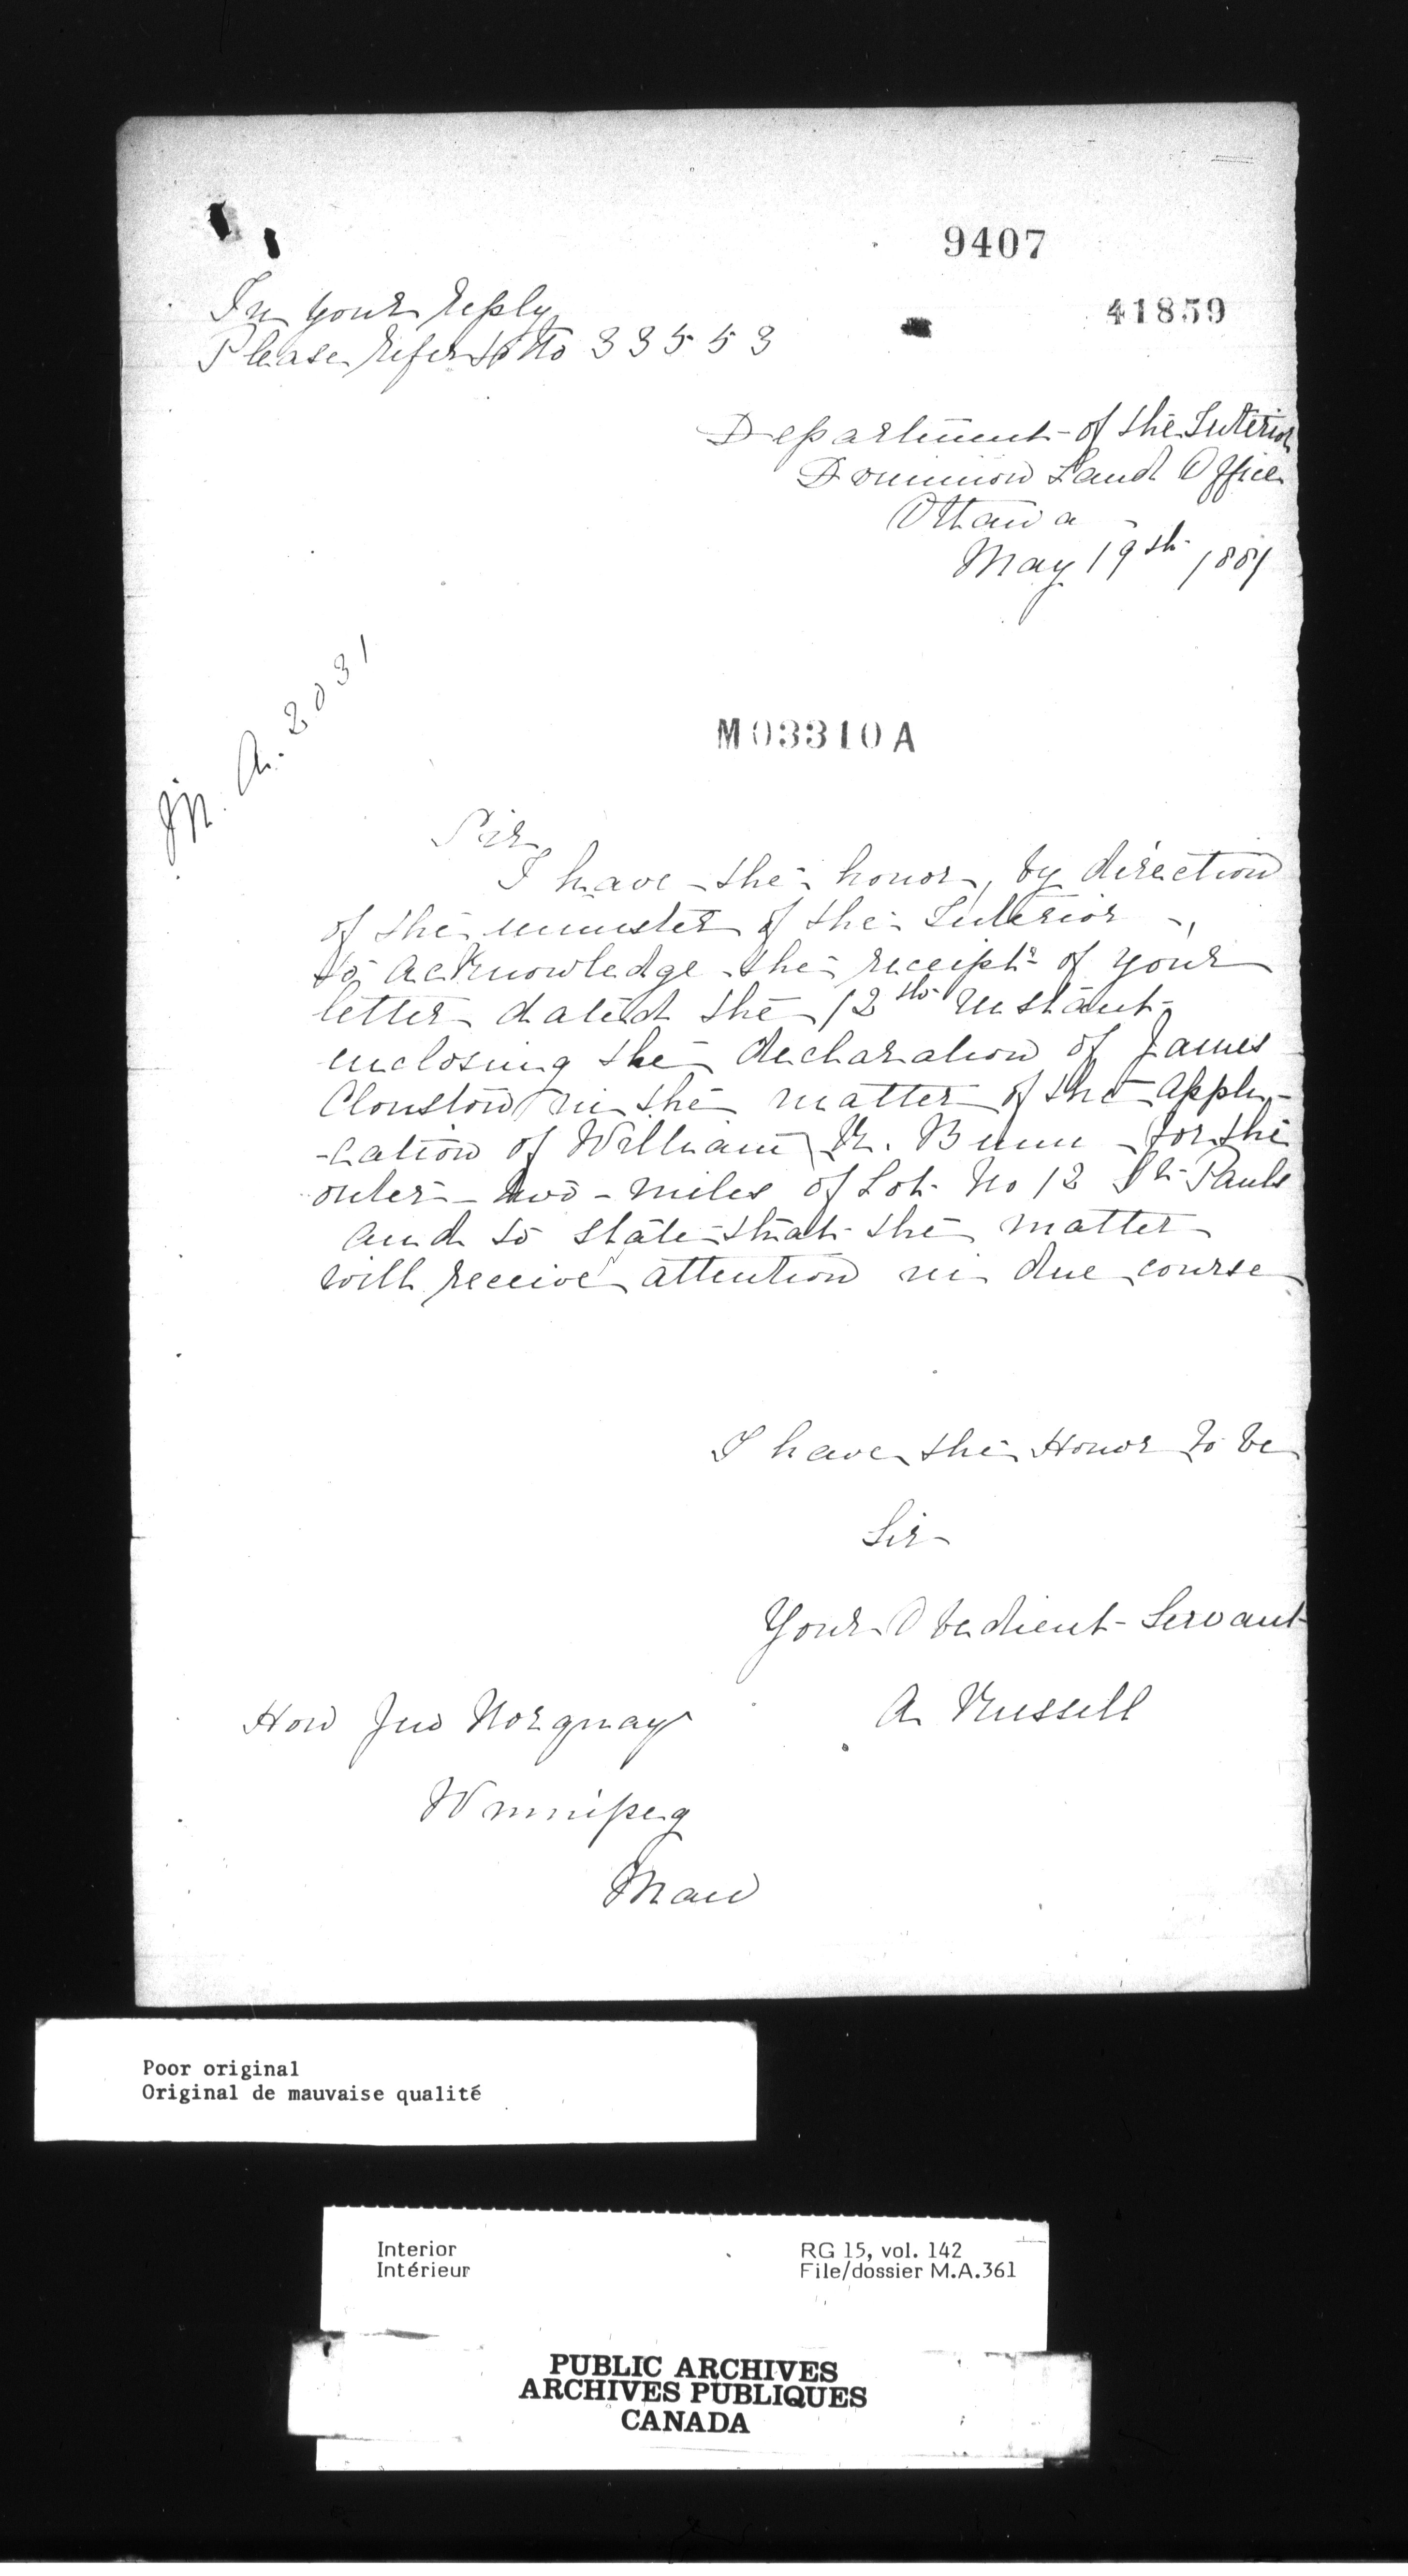 9407
41859
In your reply
Please refer to No 33553
Department of the Interior
Dominion Land Office
Ottawa
May 19th 1881
M. A. 2031
M03310A
Sir
I have the honor, by direction
of the minister of the Interior,
to acknowledge the receipt of your
letter dated the 12th instant
enclosing the declaration of James
Clouston in the matter of the appli-
-cation of William R. Bunn for the
outer two miles of Lot No 12 St Pauls
and to state that the matter
will receive attention in due course
I have the Honor to be
Sir
Your Obedient Servant
A Russell
Hon Jno Norquay
Winnipeg
Man
Poor original
Original de mauvaise qualité
Interior
Intérieur
RG 15, vol. 142
File/dossier M.A.361
PUBLIC ARCHIVES
ARCHIVES PUBLIQUES
CANADA